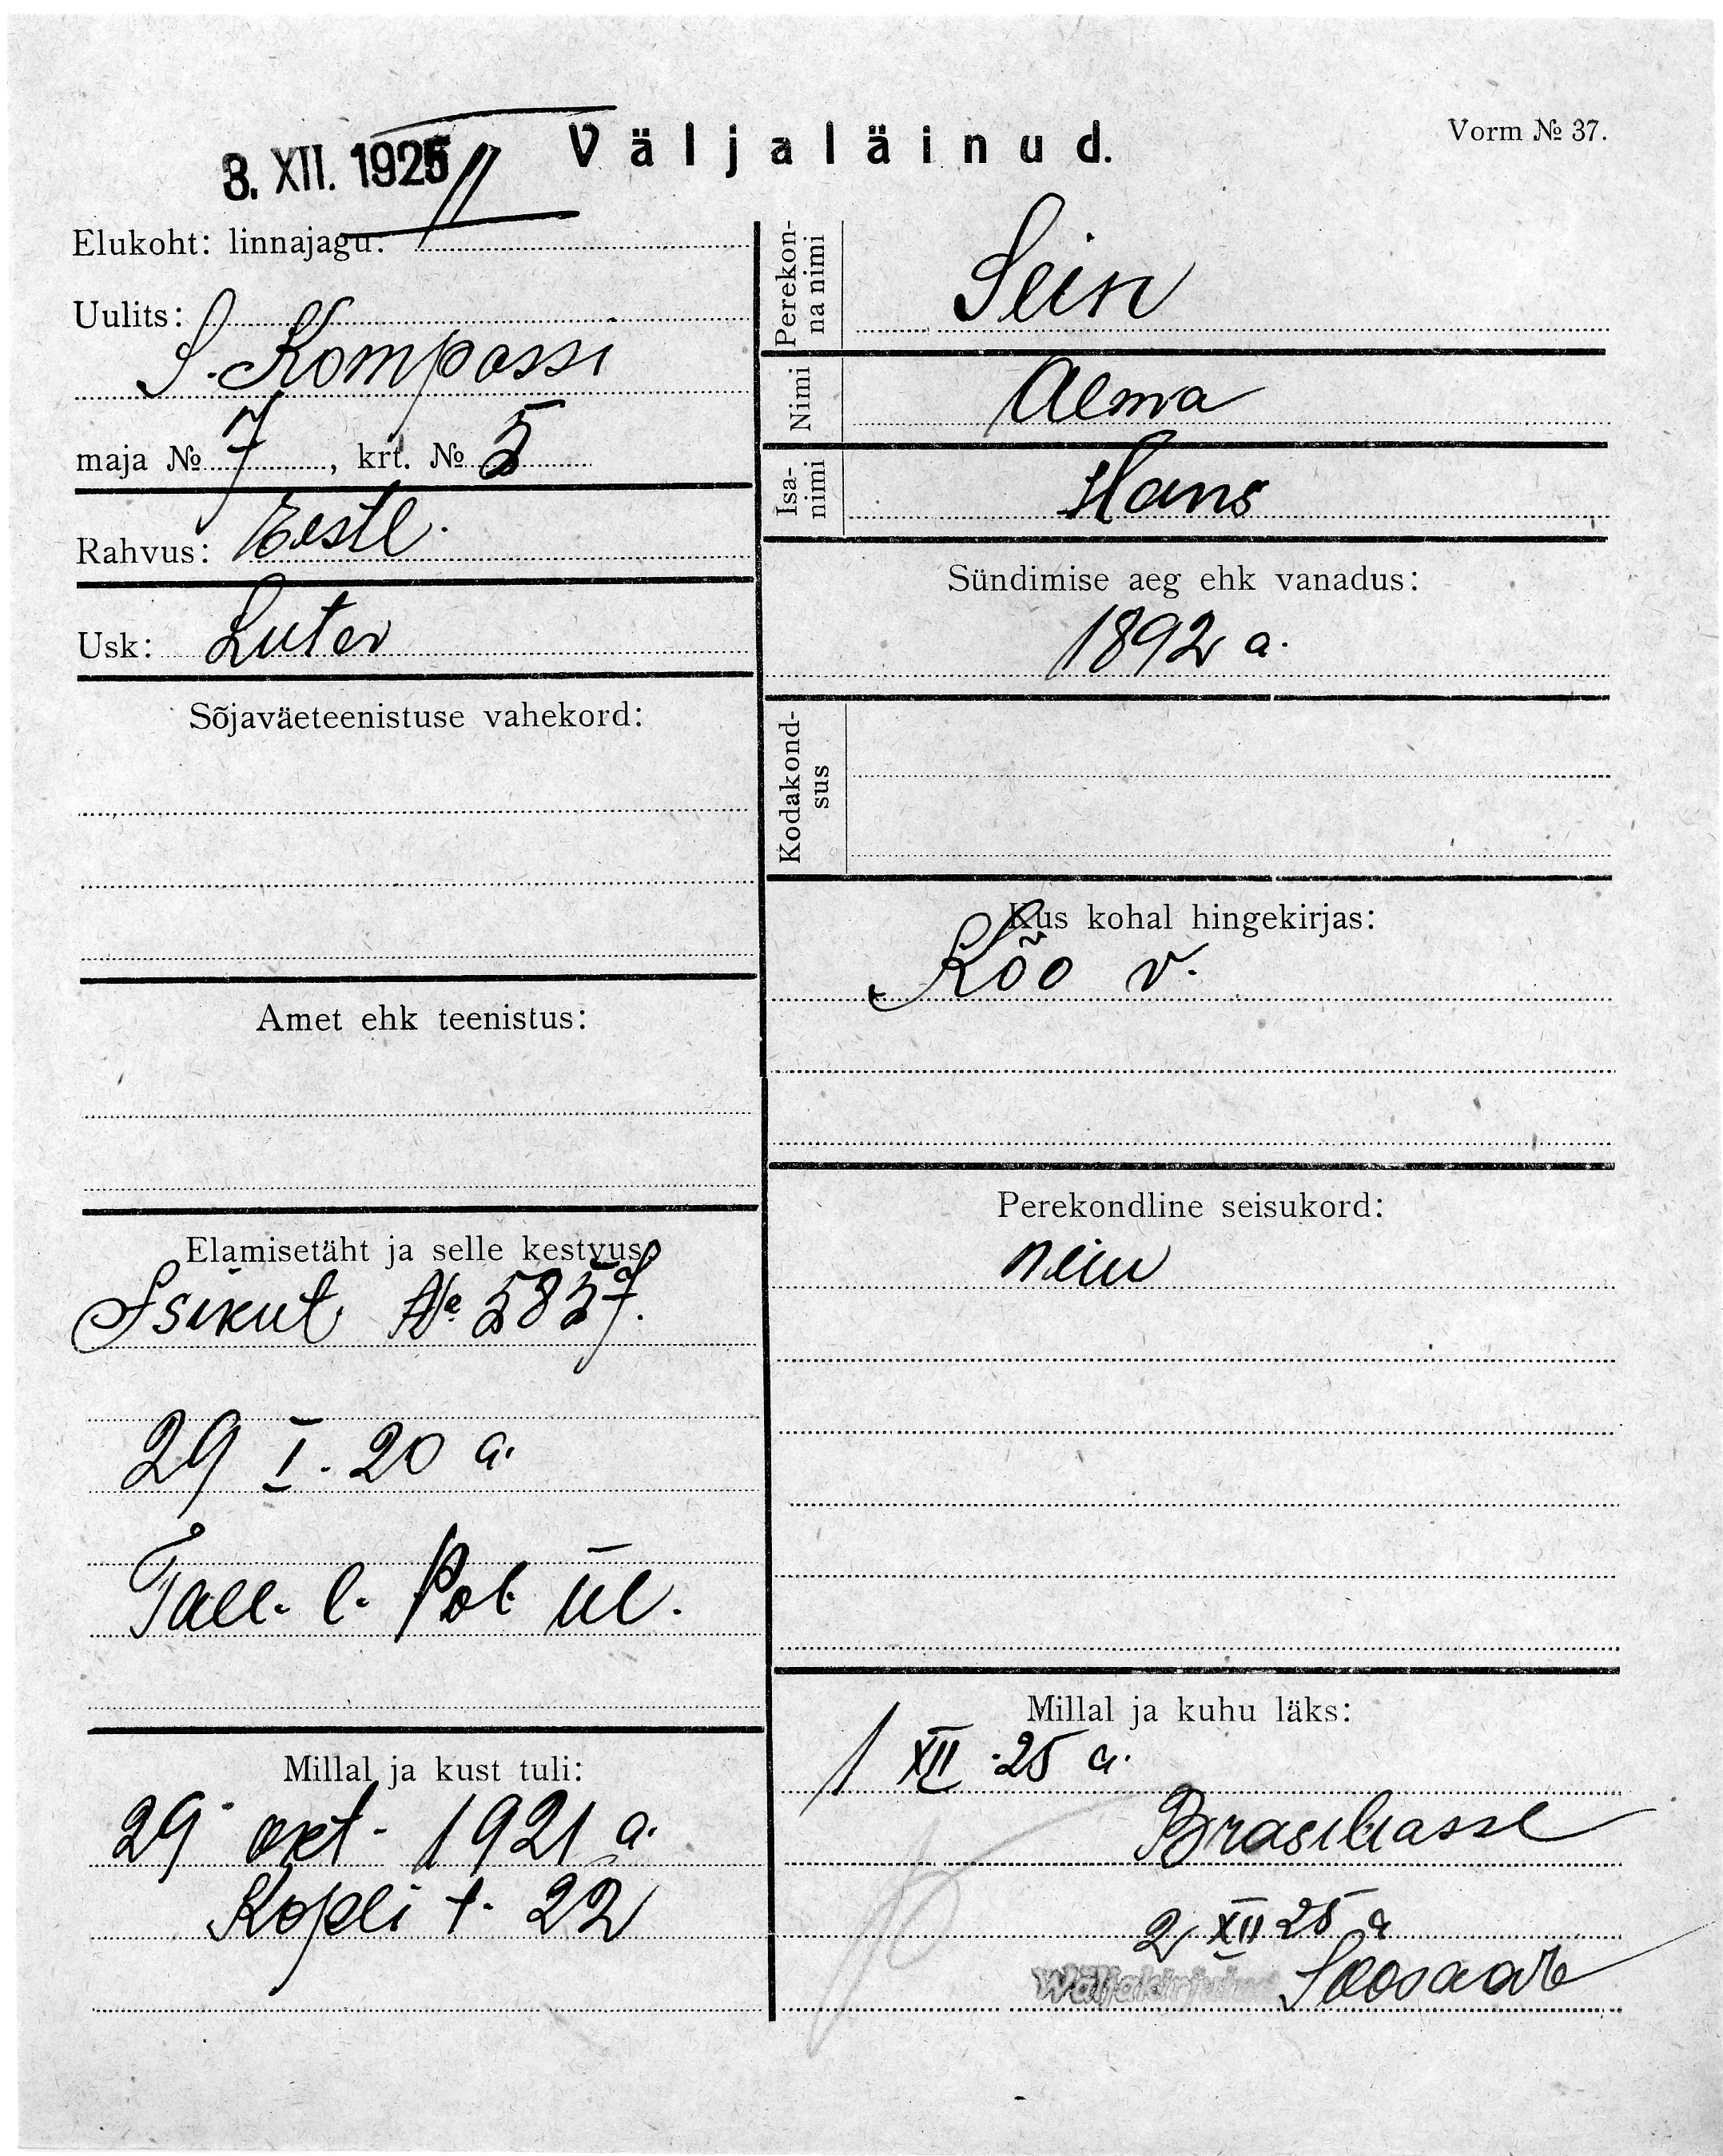 Väljaläinud.
Vorm № 37.
3. XII. 1925
Elukoht: linnajagu:
Uulits:
S. Kompassi
maja № 7, krt. № 5
Rahvus: Eestl.
Usk: Luter
Sõjaväeteenistuse vahekord:
Amet ehk teenistus:
Elamisetäht ja selle kestvus:
Isikut. № 5857.
29 I. 20 a.
Tall. l. Pol. ül.
Millal ja kust tuli:
29 okt. 1921 a.
Kopli t. 22
Perekon-
na nimi
Sein
Nimi
Alma
Isa-
nimi
Hans
Sündimise aeg ehk vanadus:
1892 a.
Kodakond-
sus
Kus kohal hingekirjas:
Kõo v.
Perekondline seisukord:
neiu
Millal ja kuhu läks:
1 XII. 25 a.
Brasiliasse
2 XII 25 a
Väljakirjutud Soosaar